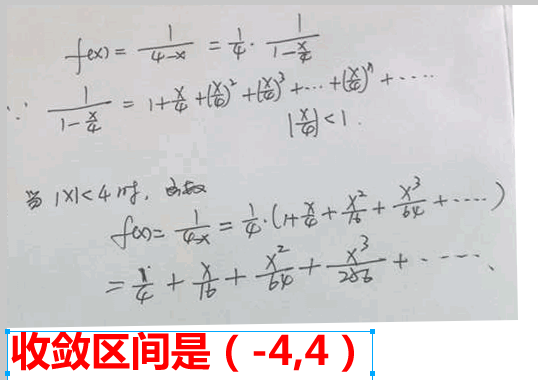 f(x) = 1/(4-x) = 1/4 · 1/(1-x/4)
∵ 1/(1-x/4) = 1+x/4+(x/4)²+(x/4)³+⋯+(x/4)ⁿ+⋯⋯
|x/4|<1.
当|x|<4时,函数
f(x)= 1/(4-x) = 1/4·(1+x/4+x²/16+x³/64+⋯⋯)
= 1/4 + x/16 + x²/64 + x³/256 + ⋯⋯、
收敛区间是(-4,4)